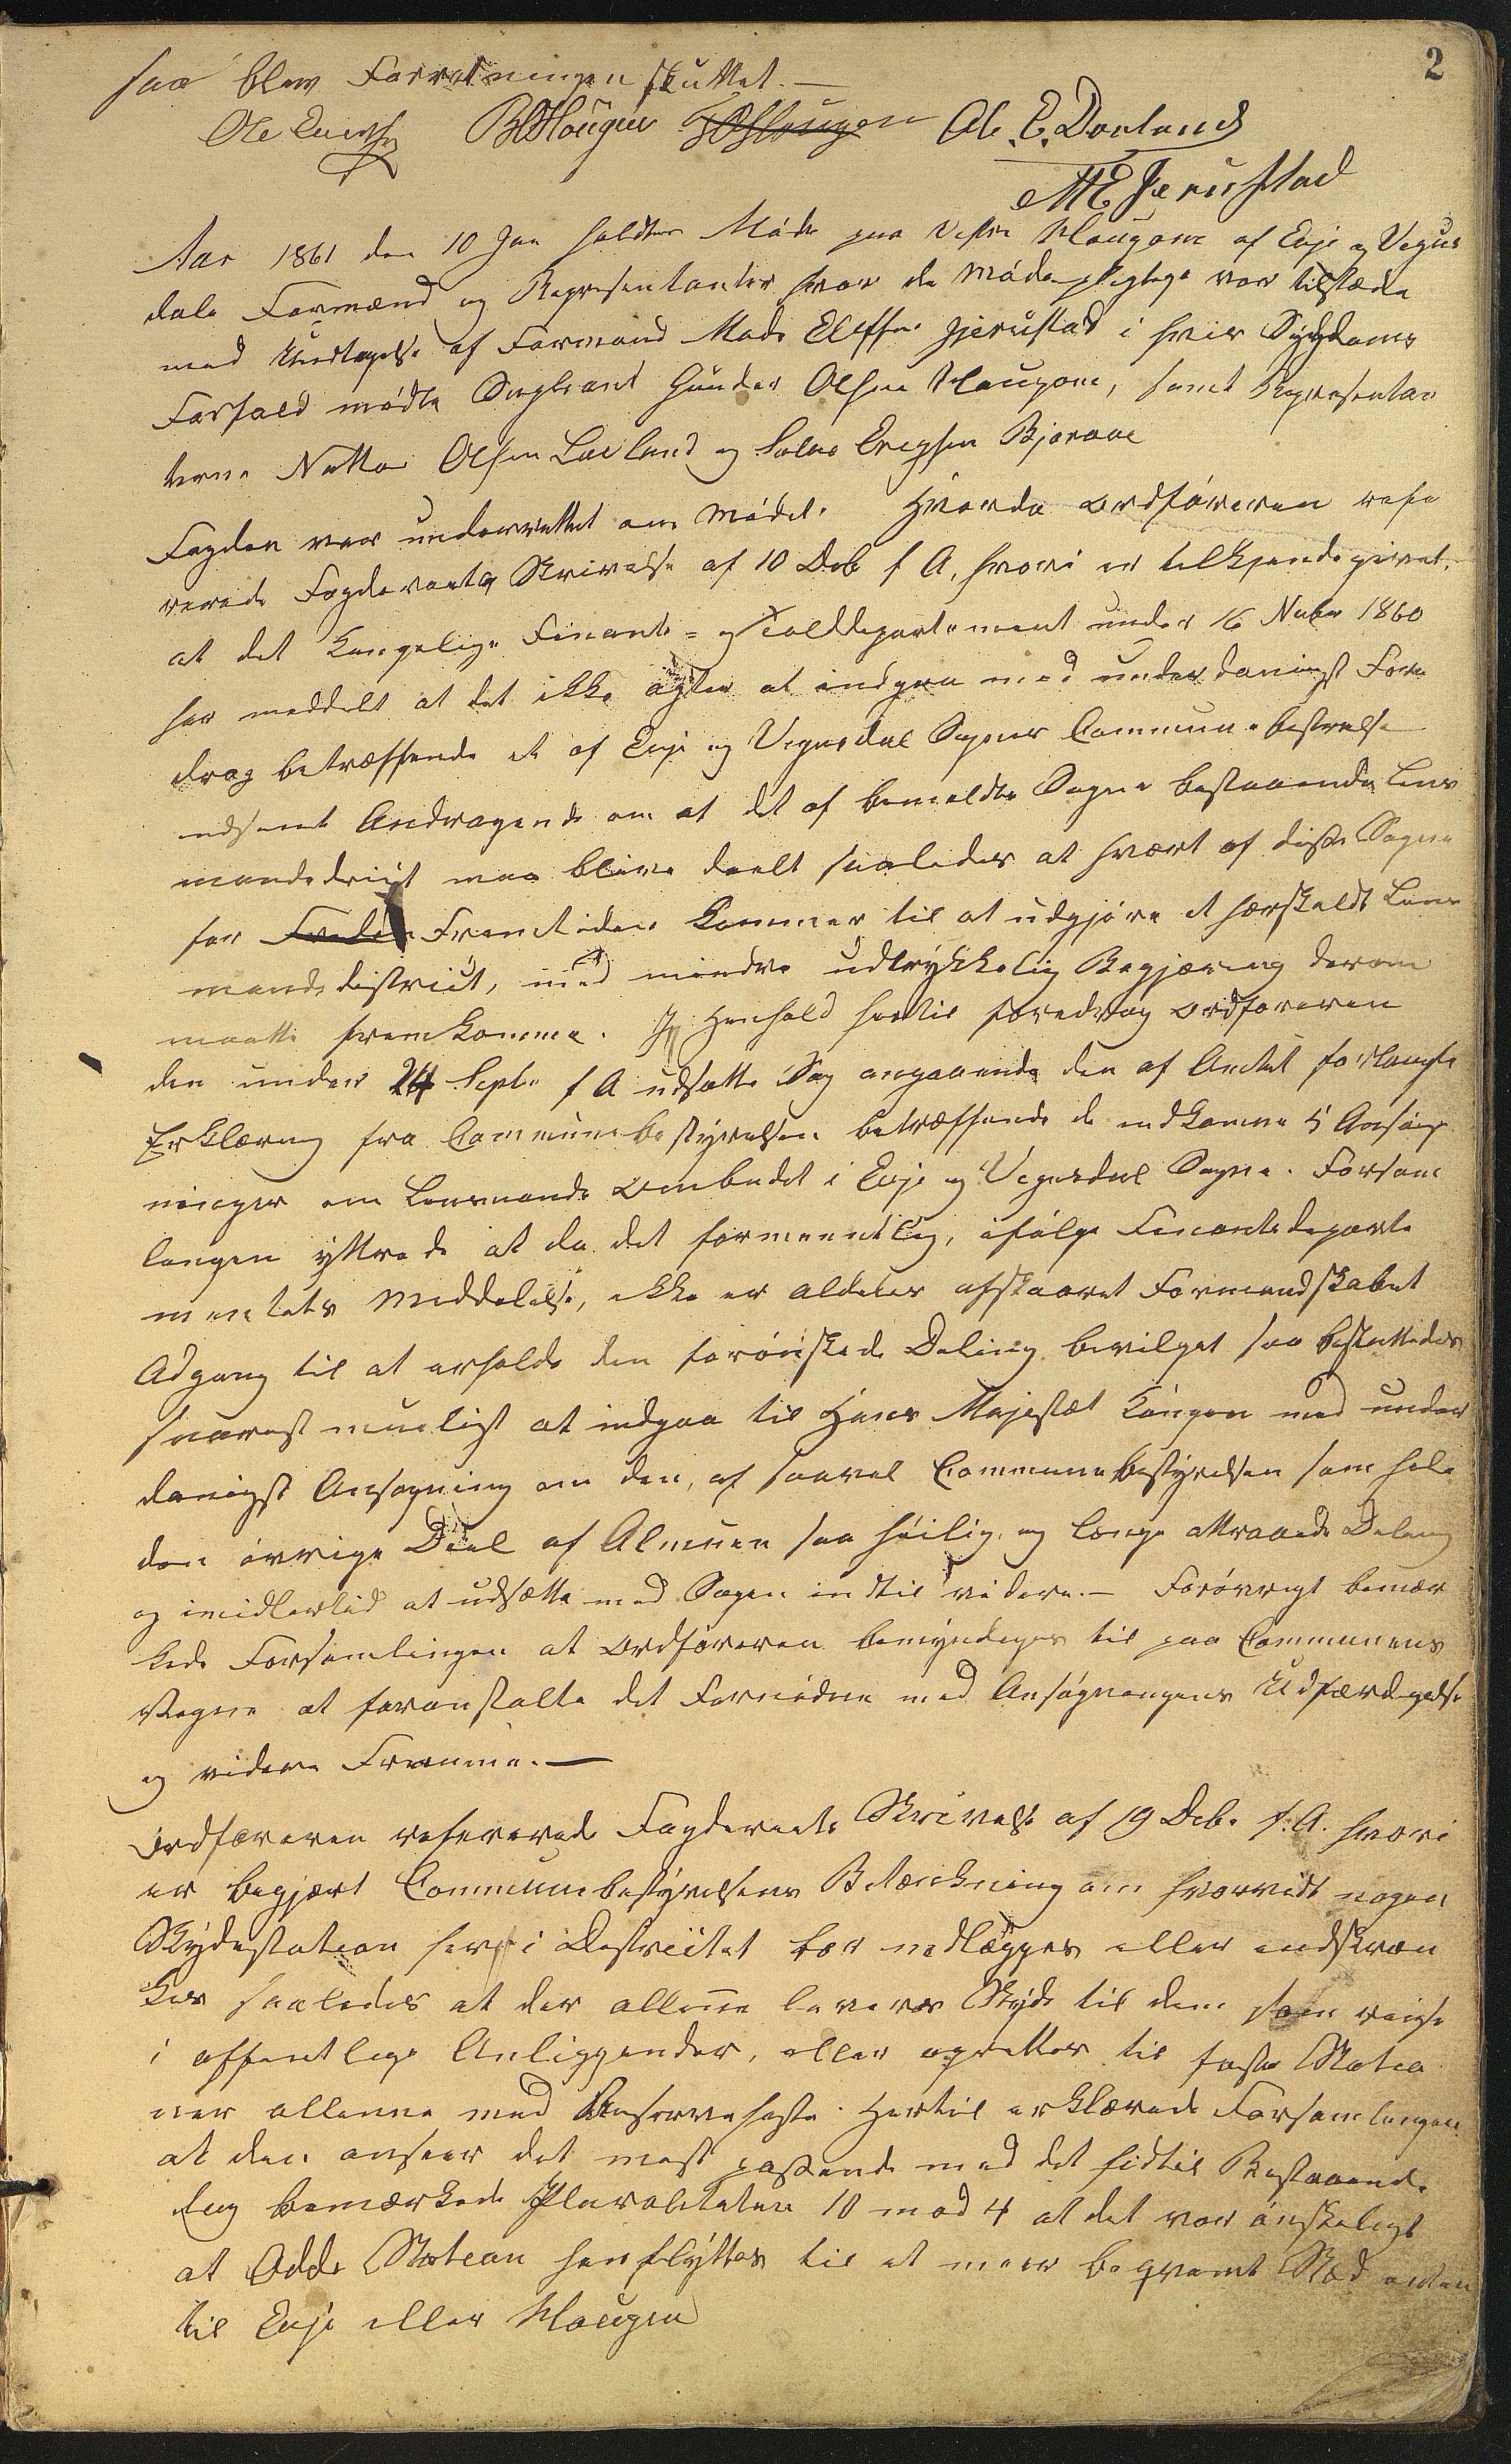 2
saa blev Forretningen sluttet. —
Ole B O Hougen Ole E. Dovland
M E Jerustad
Aar 1861 den 10 Jan holdtes Møde paa Vestre Hougane af Evje og Vegus
dals Formænd og Repræsentanter hvor de Mødepligtige var tilstæde
med Undtagelse af Formand Mads Elefsen Gjerustad i hvis Sygdoms
Forfald mødte Supleant Gunder Olsen Hougane, samt Repræsentan
terne Olsen Lauland og Salve Eregsen Bjoraae
Fogden var underrettet om Mødet. Hvorda Ordføreren refe
rerede Fogderiets Skrivelse af 10 Deb f A, hvori er tilkjendegivet,
at det Kongelige Finants- og Tolddepartement under 16 Nvbr 1860
har meddelt at det ikke agter at indgaa med underdanigst Fore
drag betræffende et af Evje og Vegusdal Sognes Communebestyrelse
indsendt Andragende om at det af bemeldte Sogne bestaaende Lens
mandsdrict maa blive deelt saaledes at hvært af disse Sogne
for Fremtiden kommer til at udgjøre et særskildt Lens
mandsdistrict, med mindre udtrykkelig Begjæring derom
maatte fremkomme. I Henhold hertil foredrog Ordføreren
den under 24 Septr f A udsatte Sag angaaende den af Amtet forlangte
Erklæring fra Communebestyrelsen betræffende de indkomne 5 Ansøg
ninger om Lensmands Ombudet i Evje og Vegusdal Sogne. Forsam
lingen yttrede at da det formeentlig, ifølge Finantsdeparte
mentets Meddelelse, ikke er aldeles afskaaret Formandskabet
Adgang til at erholde den forønskede Deling bevilget saa besluttedes
snarest mueligt at indgaa til Hans Majestæt Kongen med under
danigst Ansøgning om den, af saavel Communebestyrelsen som hele
den øvrige Deel af Almuen saa høilig og længe attraaede Deling
og imidlertid at udsætte med Sagen indtil videre. — Forøvrigt bemær
kede Forsamlingen at Ordføreren bemyndiges til paa Communens
Vegne at foranstalte det Fornødne med Ansøgningens Udfærdigelse
og videre Fremme. —
Ordføreren refererede Fogderiets Skrivelse af 19 Deb. f. A. hvori
er begjært Communebestyrelsens Betænkning om hvorvidt nogen
Skydsstation her i Destrictet bør nedlægges eller indskræn
kes saaledes at der allene leveres Skyds til dem som reise
i offentlige Anliggender, eller oprettes til faste Statio
ner allene med Reserveheste. Hertil erklærede Forsamlingen
at den anseer det mest passende med det hidtil Bestaaende.
Dog bemærkede Pluraliteten 10 mod 4 at det var ønskeligt
at Odde Station henflyttes til et mere beqvemt Sted enten
til Evje eller Hougen